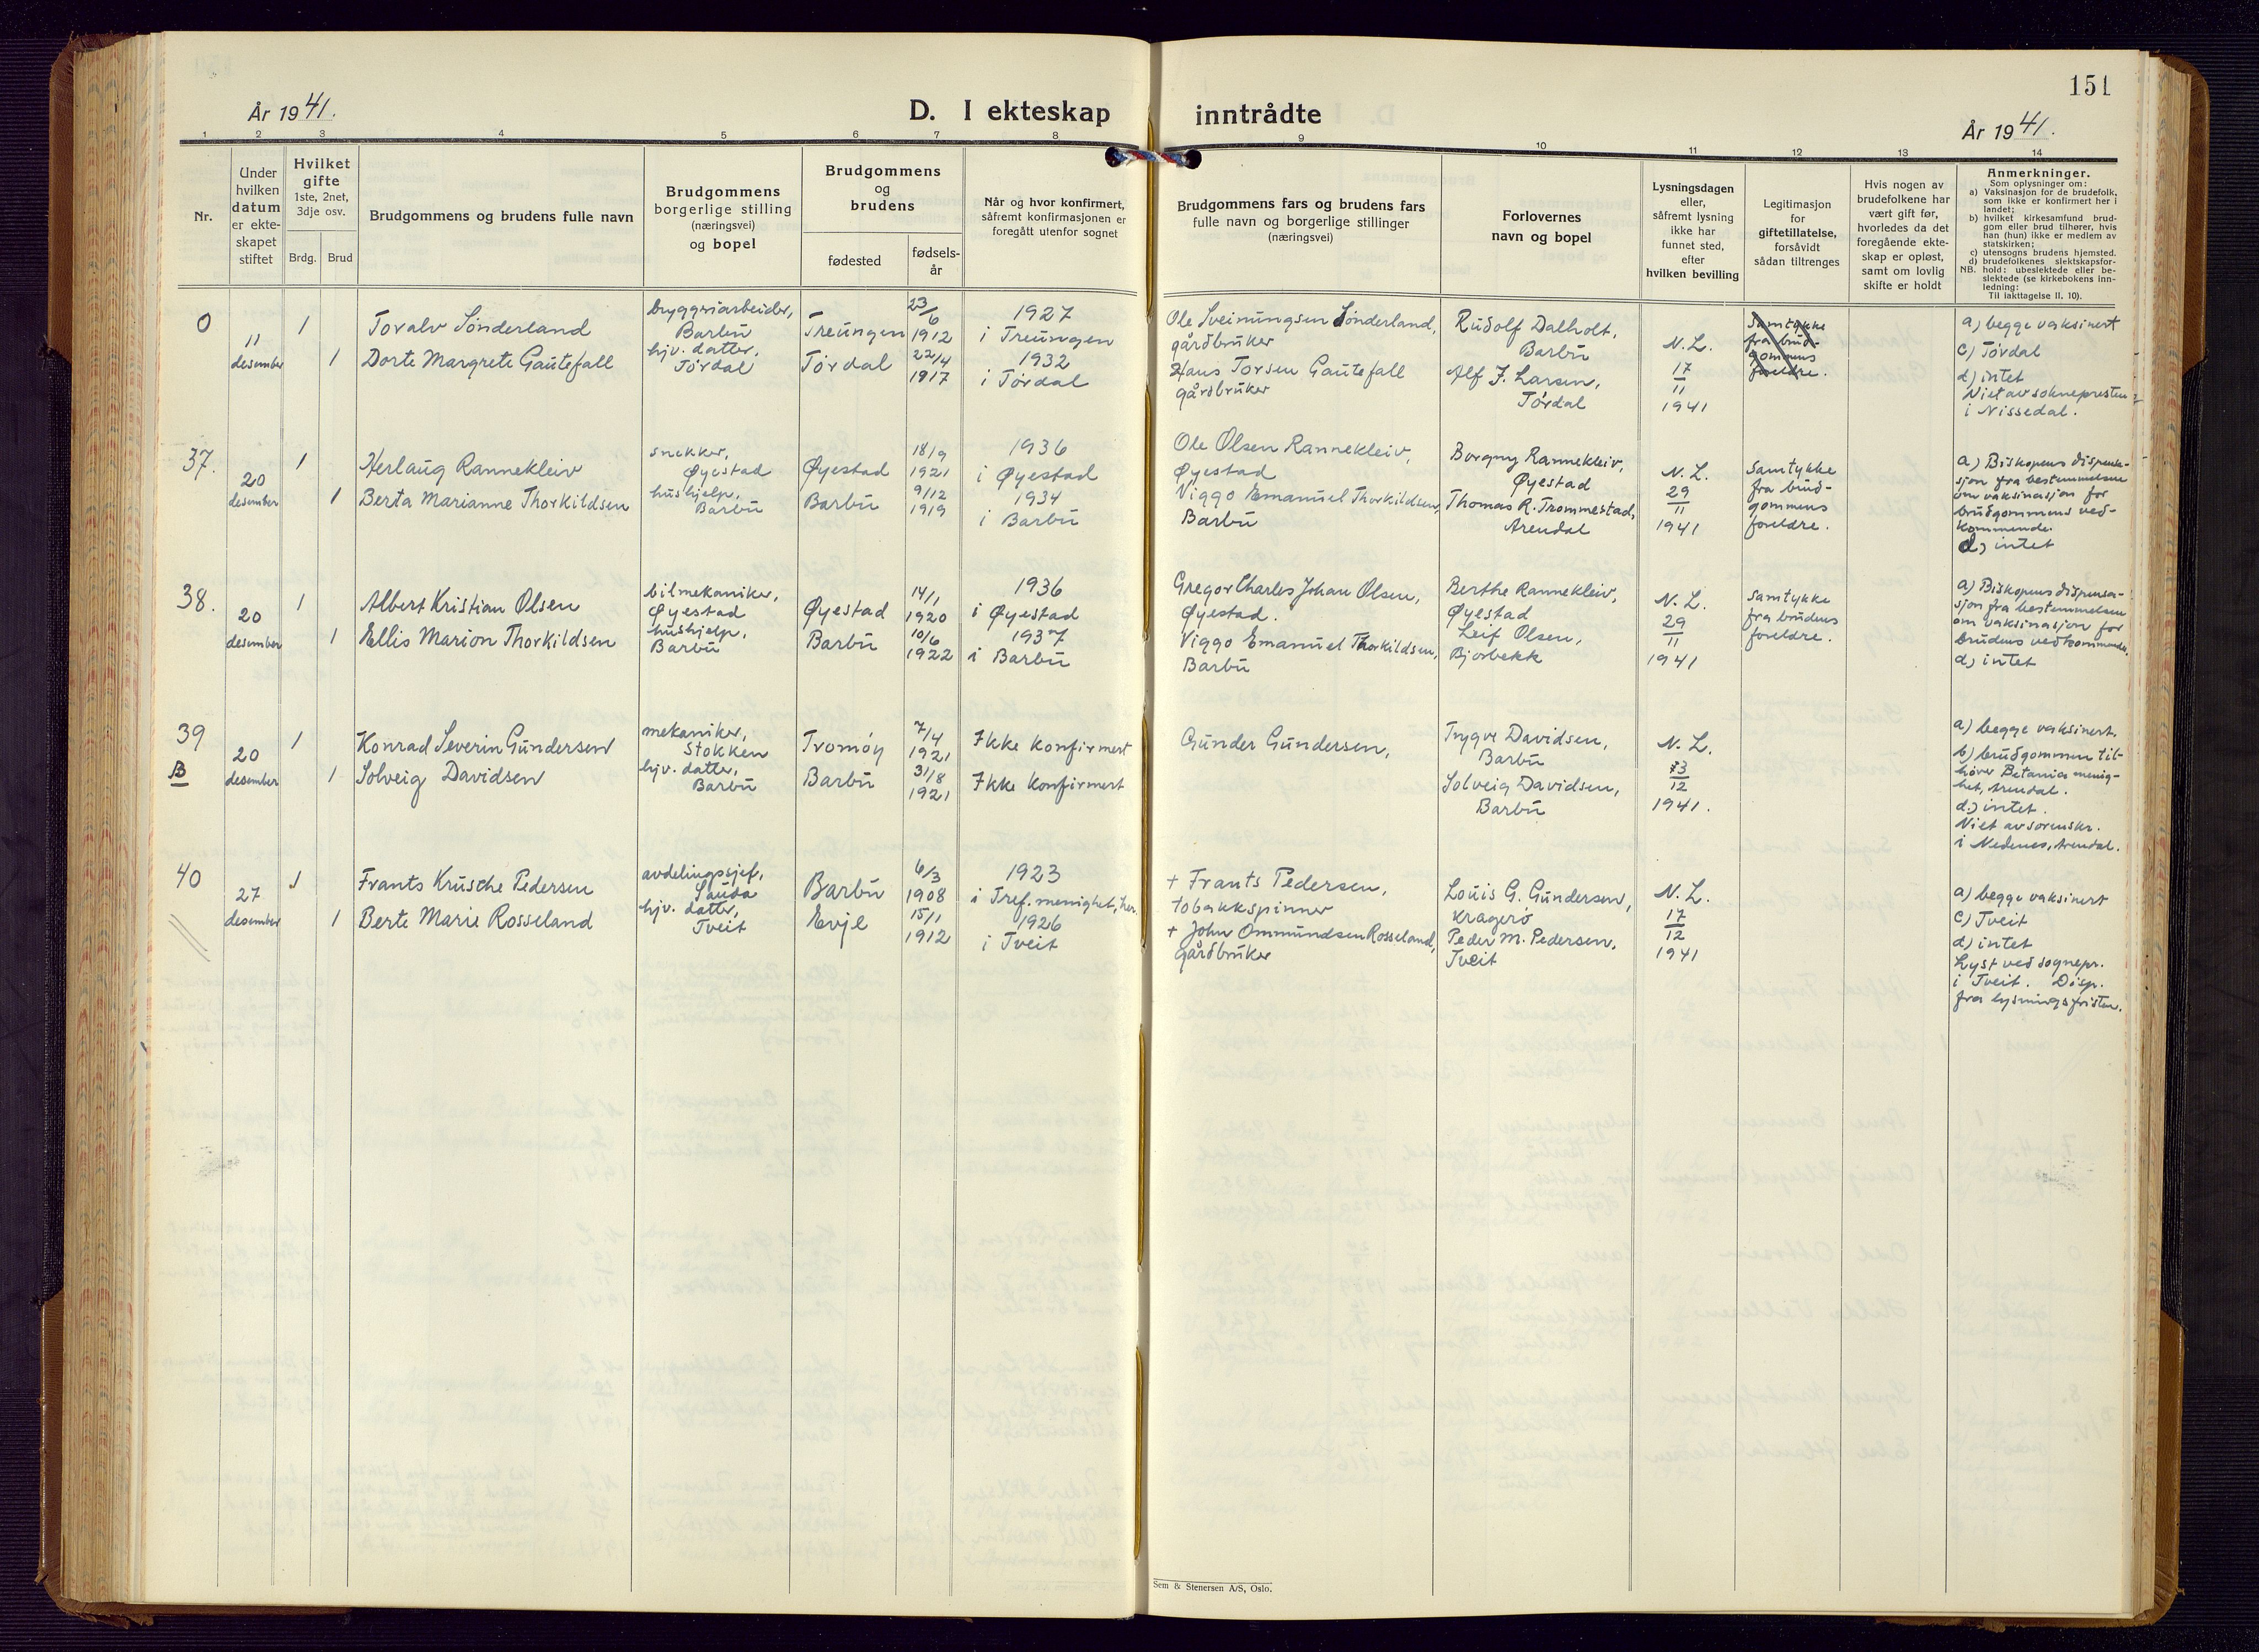 151
År 1941.
D. I ekteskap inntrådte
År 1941.
1 2 3 4 5 6 7 8 9 10 11 12 13 14
Nr.
Under
hvilken
datum
er ekte-
skapet
stiftet
Hvilket
gifte
1ste, 2net,
3dje osv.
Brdg. Brud
Brudgommens og brudens fulle navn
Brudgommens
borgerlige stilling
(næringsvei)
og bopel
Brudgommens
og
brudens
fødested
fødsels-
år
Når og hvor konfirmert,
såfremt konfirmasjonen er
foregått utenfor sognet
Brudgommens fars og brudens fars
fulle navn og borgerlige stillinger
(næringsvei)
Forlovernes
navn og bopel
Lysningsdagen
eller,
såfremt lysning
ikke har
funnet sted,
efter
hvilken bevilling
Legitimasjon
for
giftetillatelse,
forsåvidt
sådan tiltrenges
Hvis nogen av
brudefolkene har
vært gift før,
hvorledes da det
foregående ekte-
skap er opløst,
samt om lovlig
skifte er holdt
Anmerkninger.
Som oplysninger om:
a) Vaksinasjon for de brudefolk,
som ikke er konfirmert her i
landet;
b) hvilket kirkesamfund brud-
gom eller brud tilhører, hvis
han (hun) ikke er medlem av
statskirken;
c) utensogns brudens hjemsted.
d) brudefolkenes slektskapsfor-
NB. hold: ubeslektede eller be-
slektede (se kirkebokens inn-
ledning:
Til iakttagelse II, 10).
0
11
desember
1
1
Toralv Sönderland
Dorte Margrete Gautefall
bryggeriarbeider,
Barbu
hjv. datter,
Tørdal
Treungen
Tørdal
23/6
1912
22/4
1917
1927
i Treungen
1932
i Tørdal
Ole Sveinungsen Sönderland,
gårdbruker
Hans Torsen Gautefall
gårdbruker
Rudolf Dalholt,
Barbu
Alf J. Larsen,
Tørdal
N. L.
17
11
1941
Samtykke
fra brud-
gommens
foreldre.
a) begge vaksinert
c) Tørdal
d) intet
Viet av soknepresten
i Nissedal.
37.
20
desember
1
1
Herlaug Rannekleiv
Berta Marianne Thorkildsen
snekker,
Øyestad
hushjelp,
Barbu
Øyestad
Barbu
18/9
1921
9/12
1919
1936
i Øyestad
1934
i Barbu
Ole Olsen Rannekleiv,
Øyestad
Viggo Emanuel Thorkildsen,
Barbu
Borgny Rannekleiv,
Øyestad
Thomas R. Trommestad,
Arendal
N. L.
29
11
1941
Samtykke
fra brud-
gommens
foreldre.
a) Biskopens dispensa-
sjon fra bestemmelsen
om vaksinasjon for
brudgommens ved-
kommende.
d) intet
38.
20
desember
1
1
Albert Kristian Olsen
Ellis Marion Thorkildsen
bilmekaniker,
Øyestad
hushjelp,
Barbu
Øyestad
Barbu
14/1
1920
10/6
1922
1936
i Øyestad
1937
i Barbu
Gregor Charles Johan Olsen,
Øyestad.
Viggo Emanuel Thorkildsen,
Barbu
Berthe Rannekleiv,
Øyestad
Leif Olsen,
Bjorbekk
N. L.
29
11
1941
Samtykke
fra brudens
foreldre.
a) Biskopens dispensa-
sjon fra bestemmelsen
om vaksinasjon for
brudens vedkommende,
d) intet
39
B
20
desember
1
1
Konrad Severin Gundersen
Solveig Davidsen
mekaniker,
Stokken
hjv. datter,
Barbu
Tromøy
Barbu
7/4
1921
31/8
1921
Ikke konfirmert
Ikke konfirmert
Gunder Gundersen,
Trygve Davidsen,
Barbu
Solveig Davidsen,
Barbu
N. L.
3
12
1941.
a) begge vaksinert.
b) brudgommen til-
hører Betania menig-
het, Arendal.
d.) intet.
Viet av sorenskr.
i Nedenes, Arendal.
40
27
desember
1
1
Frants Krusche Pedersen
Berte Marie Rosseland
avdelingssjef,
Sauda
hjv. datter,
Tveit
Barbu
Evje
6/3
1908
15/1
1912
1923
i Tref. menighet, her.
1926
i Tveit
+ Frants Pedersen,
tobakkspinner
+ John Ommundsen Rosseland,
gårdbruker
Louis G. Gundersen,
Kragerø
Peder M. Pedersen,
Tveit
N. L.
17
12
1941
a) begge vaksinert
c) Tveit
d) intet
Lyst ved sognepr.
i Tveit. Disp.
fra lysningsfristen.
Sem & Stenersen A/S, Oslo.